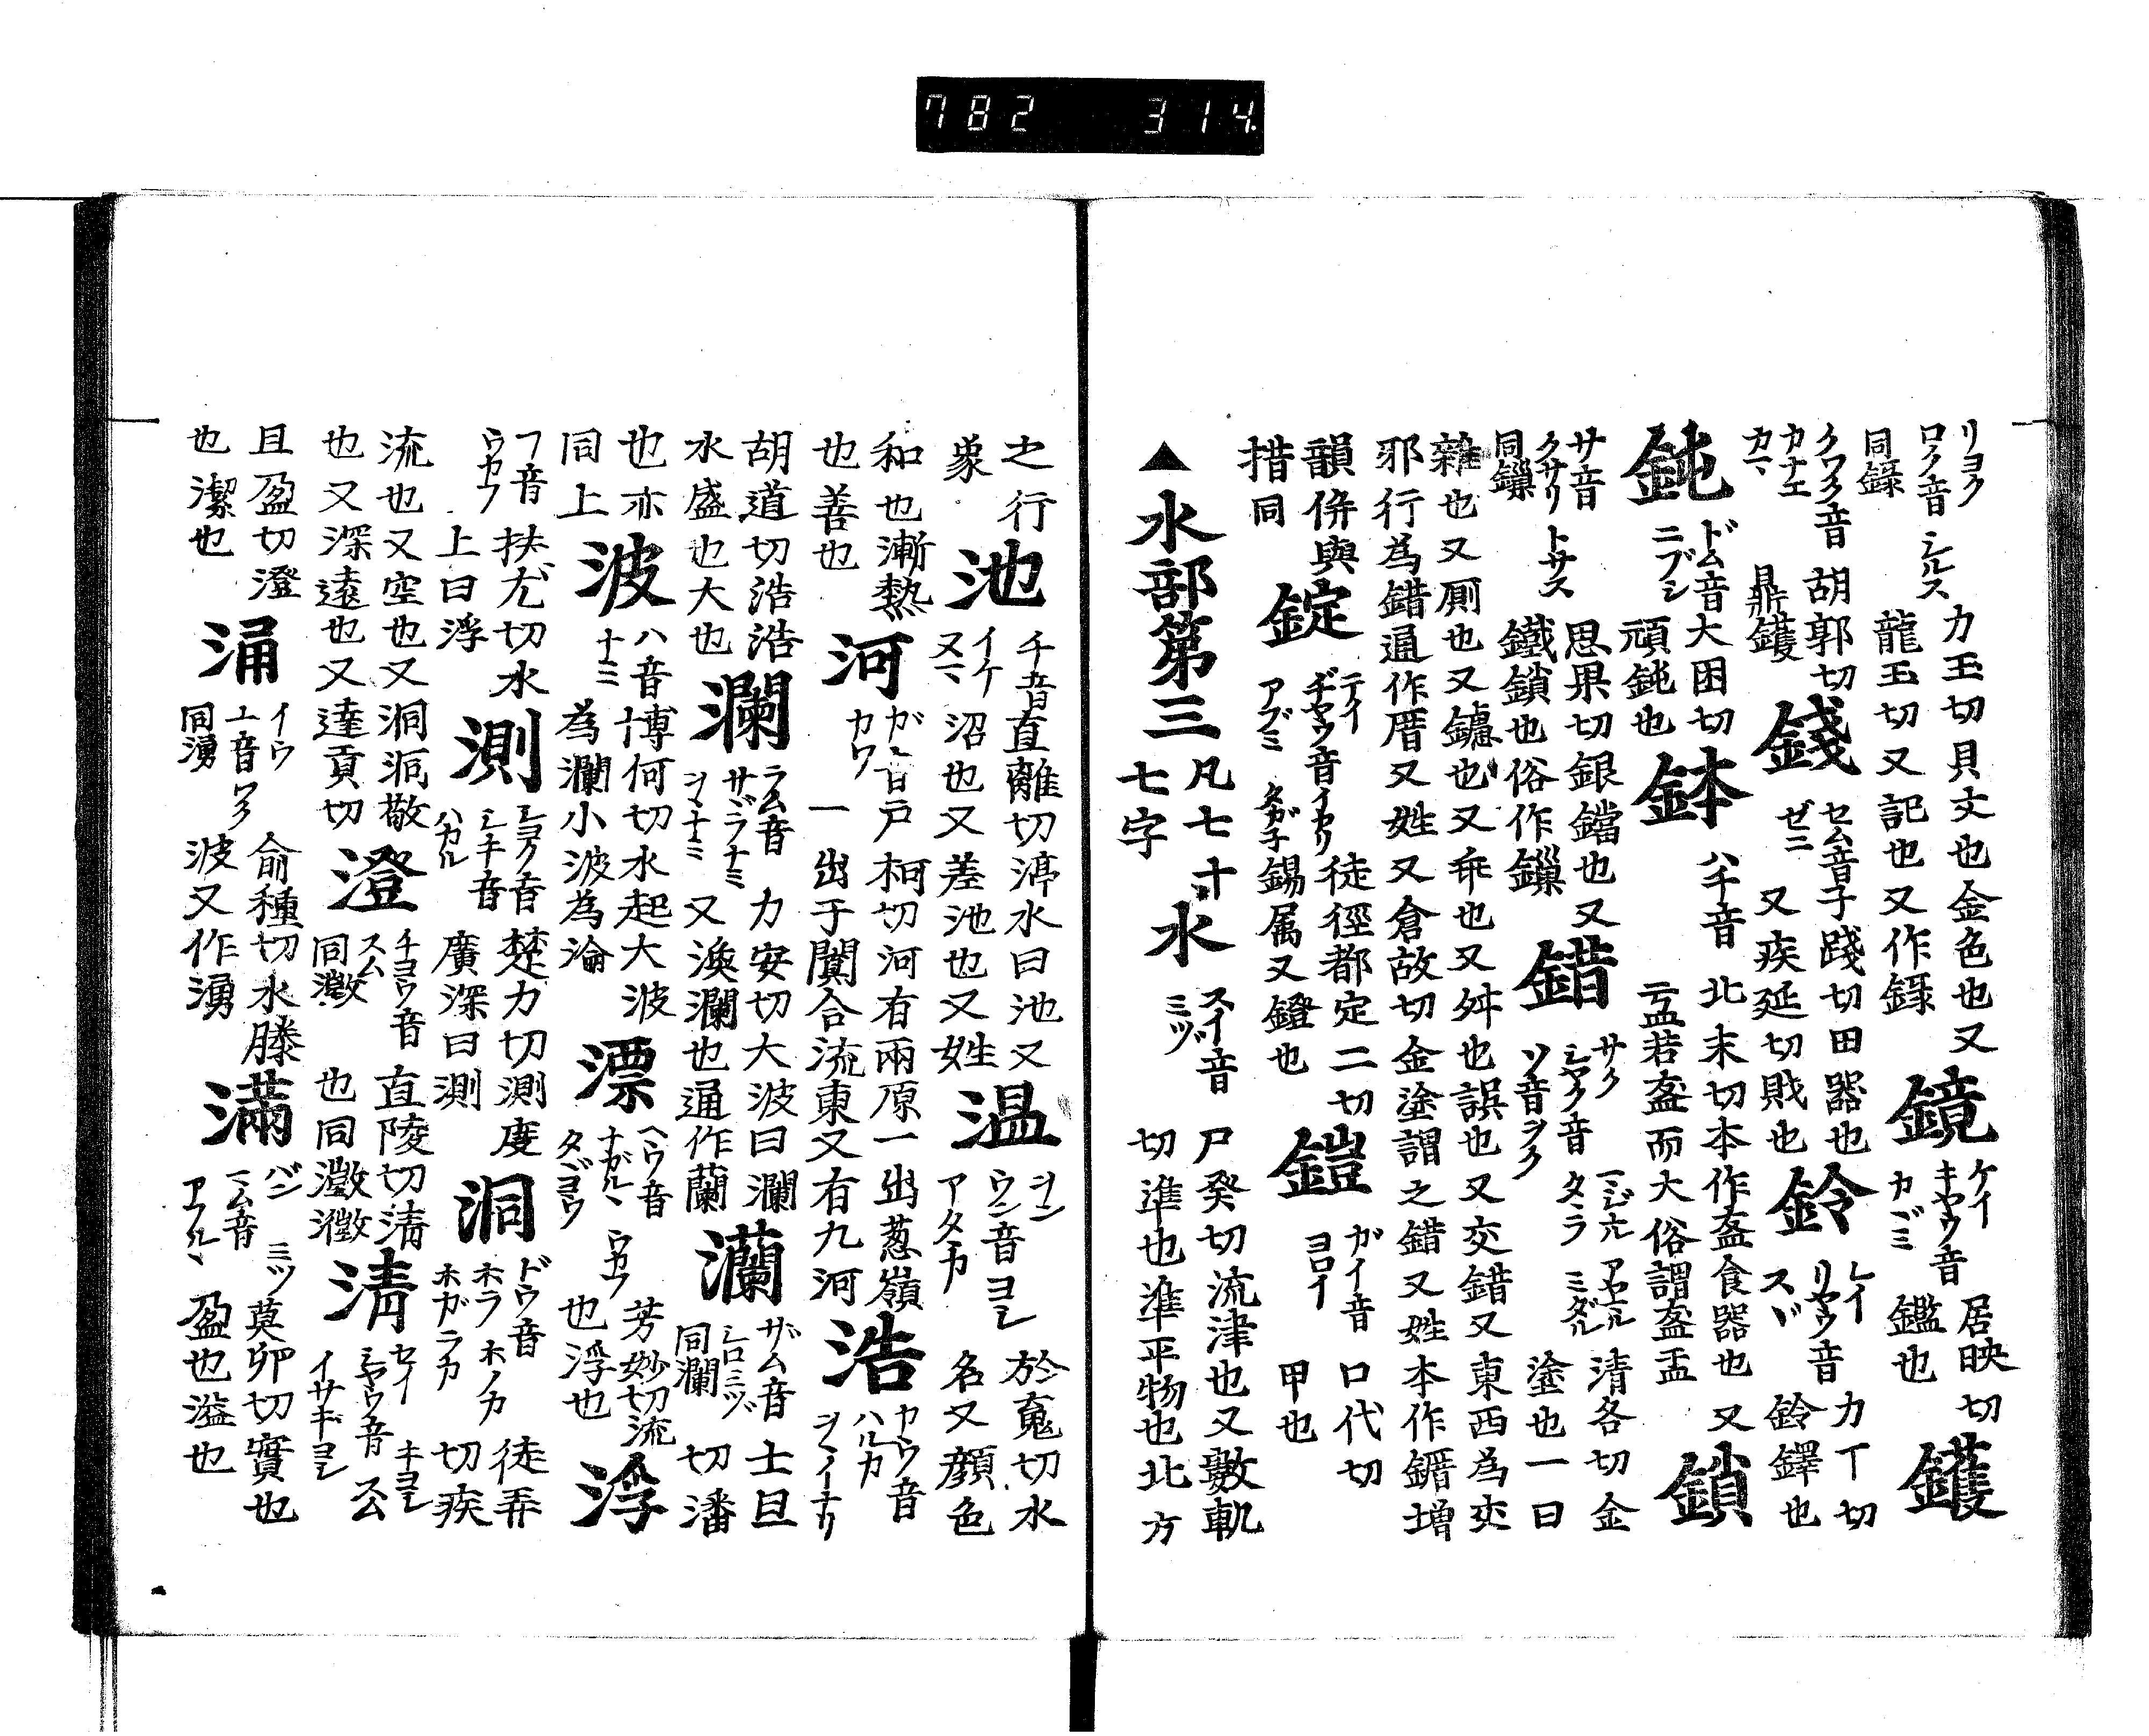 782 314
リヨク
ロク音 シルス
同録
力玉切貝文也金色也又
龍玉切又記也又作録
鏡
ケイ
キヤウ音
カヾミ
居映切
鑑也
鑊
クワク音
カナエ
カマ
胡郭切
鼎鑊
錢
セム音
ゼニ
子踐切田器也
又疾延切貯也
鈴
レイ
リヤウ音
スヾ
力丁切
鈴鐸也
鈍
ドム音
ニブシ
大困切
頑鈍也
鉢
ハチ音
北末切本作盋食器也又
盂若盋而大俗謂盋盂
鎖
サ音
クサリ トサス
同鏁
思果切銀鐺也又
鐵鎖也俗作鏁
錯
サク
シヤク音
ソ音ヲク
マジル アヤマル
タヽラ ミダル
清各切金
塗也一曰
雜也又厠也又鑢也又乖也又舛也誤也又交錯又東西為交
邪行為錯通作厝又姓又倉故切金塗謂之錯又姓本作䥘增
韻併與
措同
錠
テイ
ヂヤウ音イカリ
アブミ タガネ
徒徑都定二切
錫属又鐙也
鎧
ガイ音
ヨロイ
口代切
甲也
▲水部第三
凡七十
七字
水
スイ音
ミヅ
尸癸切流津也又數軌
切準也準平物也北方
之行
象
池
チ音
イケ
又マ
直離切渟水曰池又
沼也又差池也又姓
温
ヲン
ウン音ヨシ
アタヽカ
於䰟切水
名又顔色
和也漸熱
也善也
河
ガ音
カワ
戸柯切河有兩原一出葱嶺
一出于闐合流東又有九河
浩
カウ音
ハルカ
ヲヽイナリ
胡道切浩浩
水盛也大也
瀾
ラム音
サヾラナミ
ヲヽナミ
力安切大波曰瀾
又渙瀾也通作蘭
灡
ザム音
シロミヅ
同瀾
士旦
切潘
也亦
同上
波
ハ音
ナミ
博何切水起大波
為瀾小波為淪
漂
ヘウ音
ナガルヽ ウカフ
タヾヨウ
芳妙切流
也浮也
浮
フ音
ウカフ
扶尤切水
上曰浮
測
シヨク音
シキ音
ハカル
楚力切測度
廣深曰測
洞
ドウ音
ホラ ホノカ
ホガラカ
徒弄
切疾
流也又空也又洞洞敬
也又深遠也又達貢切
澄
チヨウ音
スム
同澂
直陵切清
也同澂瀓
清
セイ
シヤウ音 キヨシ
イサギヨシ
又公
且盈切澄
也潔也
涌
イウ
ユ音 ワク
同湧
俞種切水滕
波又作湧
滿
バン
マム音 ミツ
アフルヽ
莫卯切實也
盈也溢也